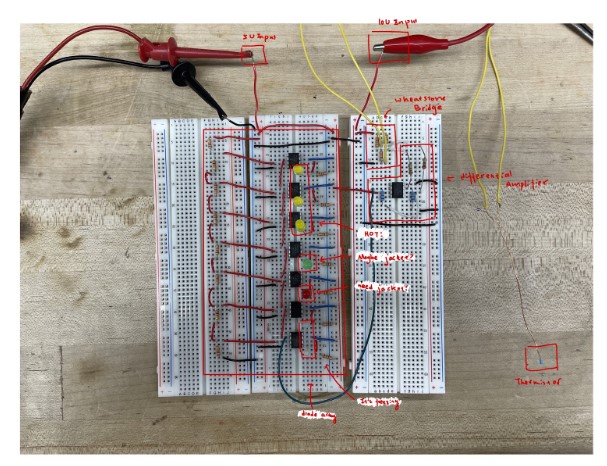 5V Input
10V Input
Wheatstone
Bridge
differential
Amplifier
HOT!
Maybe jacket?
need jacket!
Thermistor
diode array